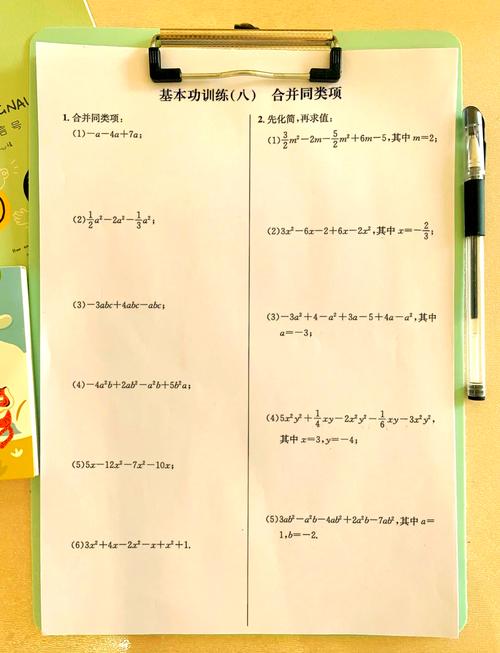 基本功训练(八) 合并同类项
1. 合并同类项:
(1)-a-4a+7a;
(2)\frac{1}{2}a²-2a²-\frac{1}{3}a²;
(3)-3abc+4abc-abc;
(4)-4a²b+2ab²-a²b+5b²a;
(5)5x-12x²-7x²-10x;
(6)3x²+4x-2x²-x+x²+1.
2. 先化简,再求值:
(1)\frac{3}{2}m²-2m-\frac{5}{2}m²+6m-5,其中m=2;
(2)3x²-6x-2+6x-2x²,其中x=-\frac{2}{3};
(3)-3a²+4-a²+3a-5+4a-a²,其中
a=-3;
(4)5x²y²+\frac{1}{4}xy-2x²y²-\frac{1}{6}xy-3x²y²,
其中x=3,y=-4;
(5)3ab²-a²b-4ab²+2a²b-7ab²,其中a=
1,b=-2.
GNAI
信号